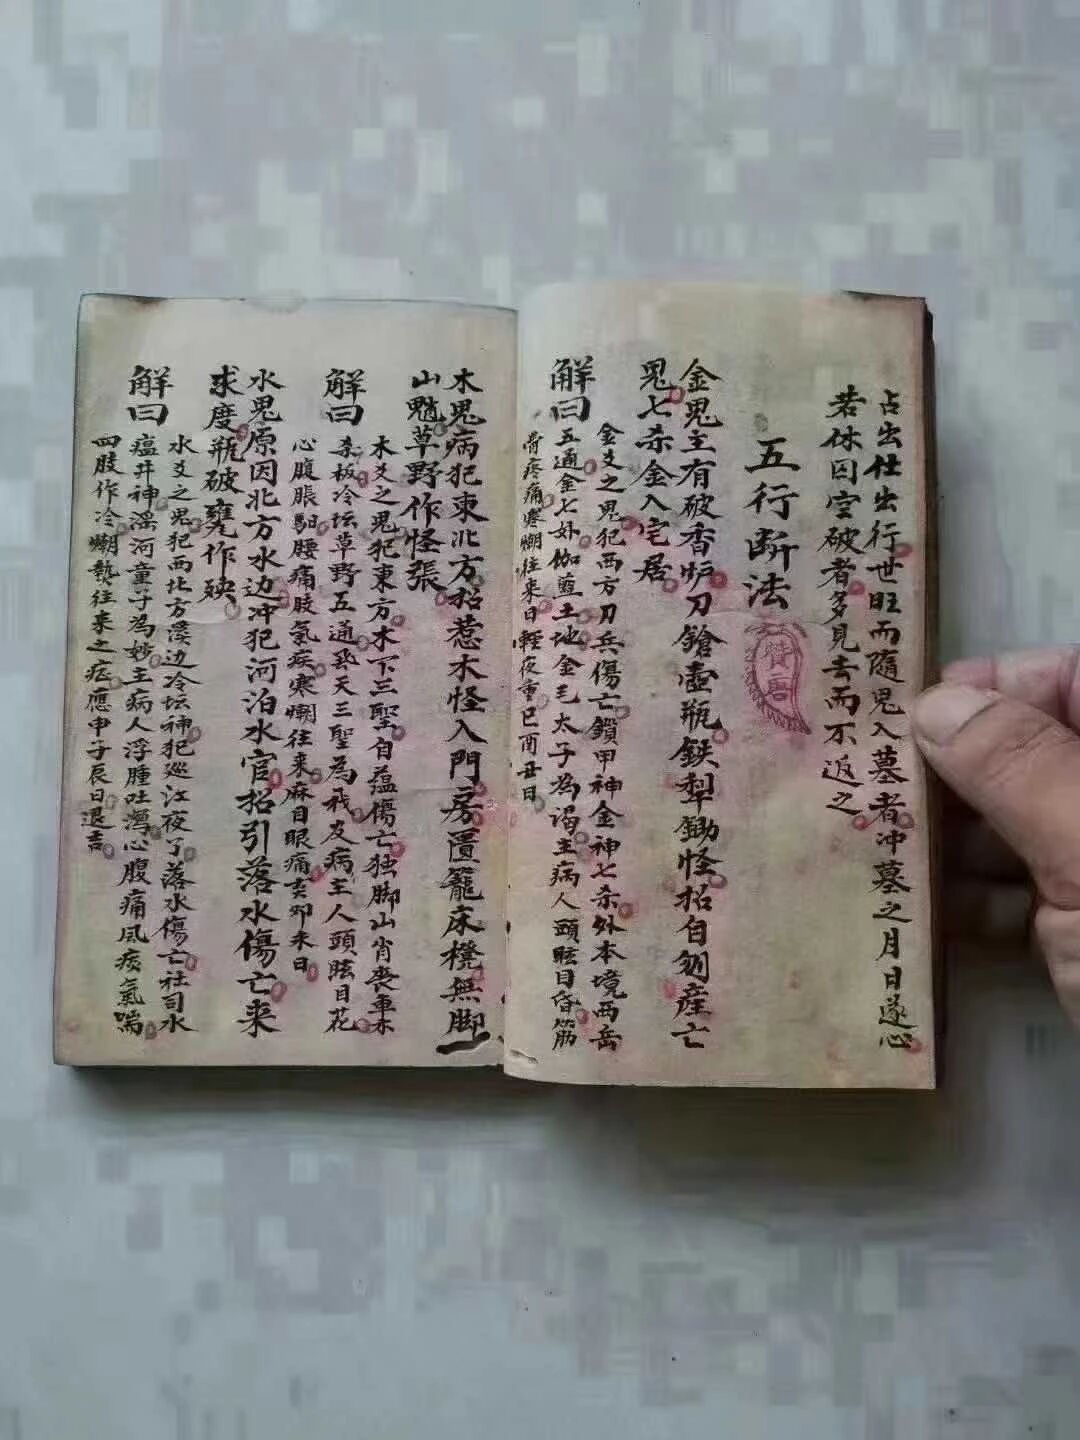 占出仕出行世旺而隨鬼入墓者冲墓之月日遂心
若休囚空破者多見去而不返之
五行断法
金鬼主有破香炉刀鎗壺瓶鉄犁鋤怪招自刎産亡
鬼七杀金入宅居
解曰
金爻之鬼犯西方刀兵傷亡鎖甲神金神七杀外本境西岳
五通金七妳伽藍土地金毛太子為谒主病人頭眩目昏筋
骨疼痛寒㘈往来日輕夜重巳酉丑日
木鬼病犯東北方招惹木怪入門房匱籠床櫈無脚
山魈草野作怪張
解曰
木爻之鬼犯東方木下三聖自蕴傷亡独脚山肖喪車木
杀板冷坛草野五通飛天三聖為我友病主人頭眩目花
心腹脹腰痛肢氣疾寒㘈往来麻目眼痛亥卯未日
水鬼原因北方水边冲犯河泊水官招引落水傷亡来
求度瓶破甕作殃
解曰
水爻之鬼犯西北方溪边冷坛神犯巡江夜了落水傷亡社司水
瘟井神滛河童子為妙主病人浮腫吐瀉心腹痛風痰氣喘
四肢作冷㘈熱往来之症應申子辰日退吉